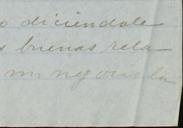 o diciendole
s buenas rela
mi negocio la